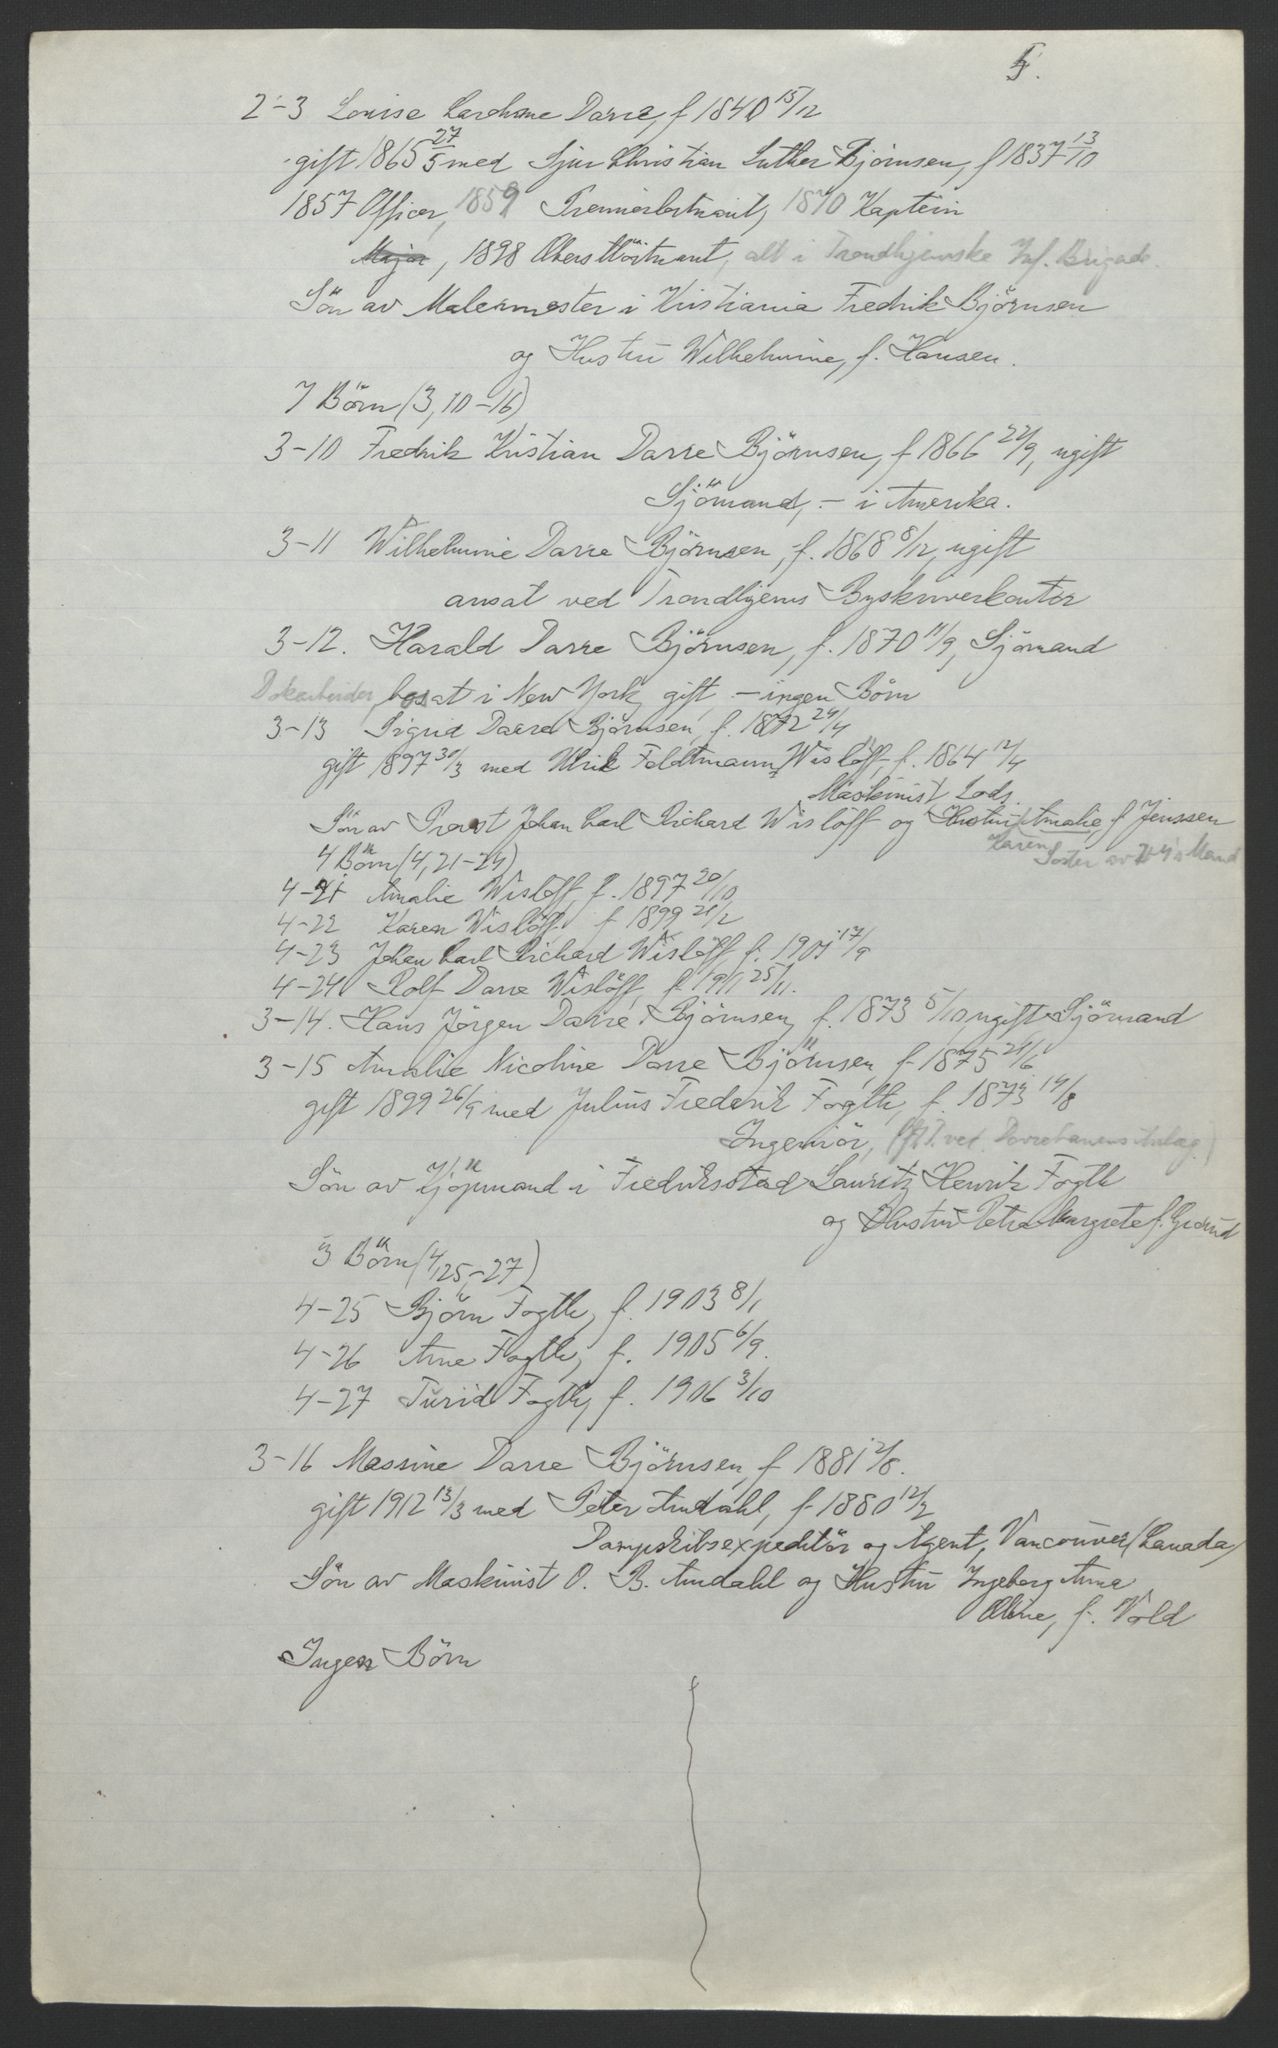 5.
2-3 Louise Caroline Darre, f 1840 15/12
gift 1865 27/5 med Sjur Christian Luther Björnsen, f 1837 13/10
1857 Officer, 1859 Premierlöitnant, 1870 Kaptein
Major, 1898 Oberstlöitnant, alt i Trondhjemske Inf. Brigade.
Sön av Malermester i Kristiania Fredrik Björnsen
og Hustru Wilhelmine, f. Hansen.
7 Börn (3, 10-16)
3-10 Fredrik Kristian Darre Björnsen, f 1866 22/9, ugift
Sjömand, - i Amerika.
3-11 Wilhelmine Darre Björnsen, f. 1868 8/12, ugift
ansat ved Trondhjems Byskriverkontor
3-12. Harald Darre Björnsen, f. 1870 11/9, Sjömand
Dokarbeider, bosat i New York, gift, - ingen Börn
3-13 Sigrid Darre Björnsen, f. 1872 24/4
gift 1897 30/3 med Ulrik Feldtmann Wislöff, f. 1864 12/4
Maskinist Lods
Sön av Provst Johan Carl Richard Wislöff og Hustru Amalie, f Jenssen
Karen
Söster av Mand
4 Börn (4, 21-24)
4-21 Amalie Wislöff, f. 1897 20/10
4-22 Karen Wislöff f 1899 21/2
4-23 Johan Carl Richard Wislöff f. 1901 17/9
4-24 Rolf Darre Wislöff, f. 1911 25/11.
3-14. Hans Jörgen Darre Björnsen, f. 1873 5/10, ugift Sjömand
3-15 Amalie Nicoline Darre Björnsen, f 1875 24/6
gift 1899 26/9 med Julius Frederik Fogth, f. 1873 14/8
Ingeniör, ved Dovrebanens Anlæg)
Sön av Kjöpmand i Fredriksstad Lauritz Henrik Fogth
og Hustru Petra Margrete f. Grorud
3 Börn (4, 25-27)
4-25 Björn Fogth, f. 1903 8/1
4-26 Arne Fogth, f. 1905 6/9.
4-27 Turid Fogth, f. 1906 3/10
3-16 Massine Darre Björnsen, f 1881 2/8.
gift 1912 13/3 med Peter Amdahl, f 1880 12/2
Dampskibsexpeditör og Agent, Vancouver (Canada)
Sön av Maskinist O. B. Amdahl og Hustru Ingeborg Anna
Oline, f. Vold
Ingen Börn